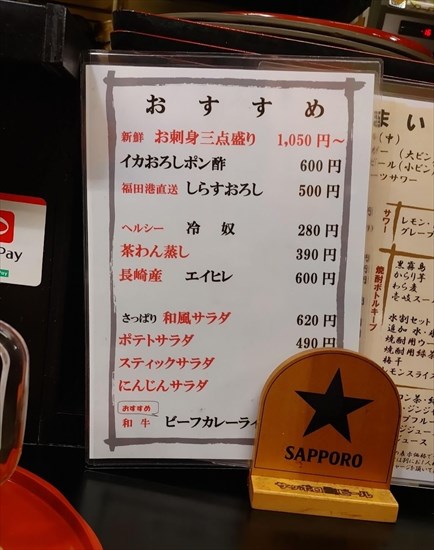 おすすめ
新鮮 お刺身三点盛り 1,050円〜
イカおろしポン酢 600円
福田港直送 しらすおろし 500円
ヘルシー 冷奴 280円
茶わん蒸し 390円
長崎産 エイヒレ 600円
さっぱり 和風サラダ 620円
ポテトサラダ 490円
スティックサラダ
にんじんサラダ
おすすめ
和牛 ビーフカレーライ
SAPPORO
Pay
まい
(中)
(大ビン
ビール(小ビン
ーツサワー
サワー
レモン・
グレープ
焼酎ボトルキープ
黒霧島
からり芋
わら麦
壱岐スー
水割セット
追加 水・
焼酎用ウー
焼酎用緑茶
梅干
レモンスライス